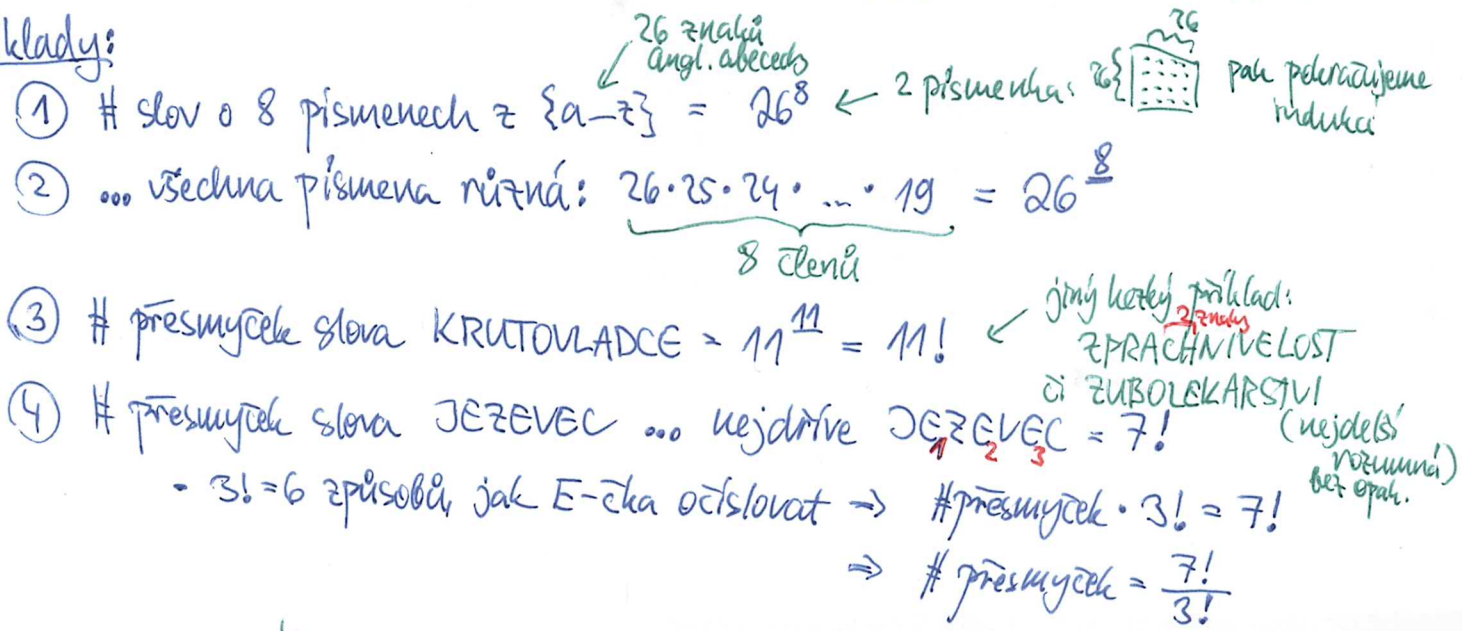 klady:
26 znaků
angl. abecedy
① # slov o 8 písmenech z {a–z} = 26⁸ ← 2 písmenka: 26{ 26 pak pokračujeme
indukcí
② ... všechna písmena různá: 26·25·24· ... · 19 = 26^<u>8</u>
8 členů
③ # přesmyček slova KRUTOVLADCE = 11^<u>11</u> = 11!
← jiný hezký příklad:
2 znaky
ZPRACHNIVELOST
či ZUBOLEKARSTVI
(nejdelší
rozumná)
bez opak.
④ # přesmyček slova JEZEVEC ... nejdříve JE₁ZE₂VE₃C = 7!
· 3! = 6 způsobů, jak E-čka očíslovat ⇒ #přesmyček · 3! = 7!
⇒ # přesmyček = 7!/3!